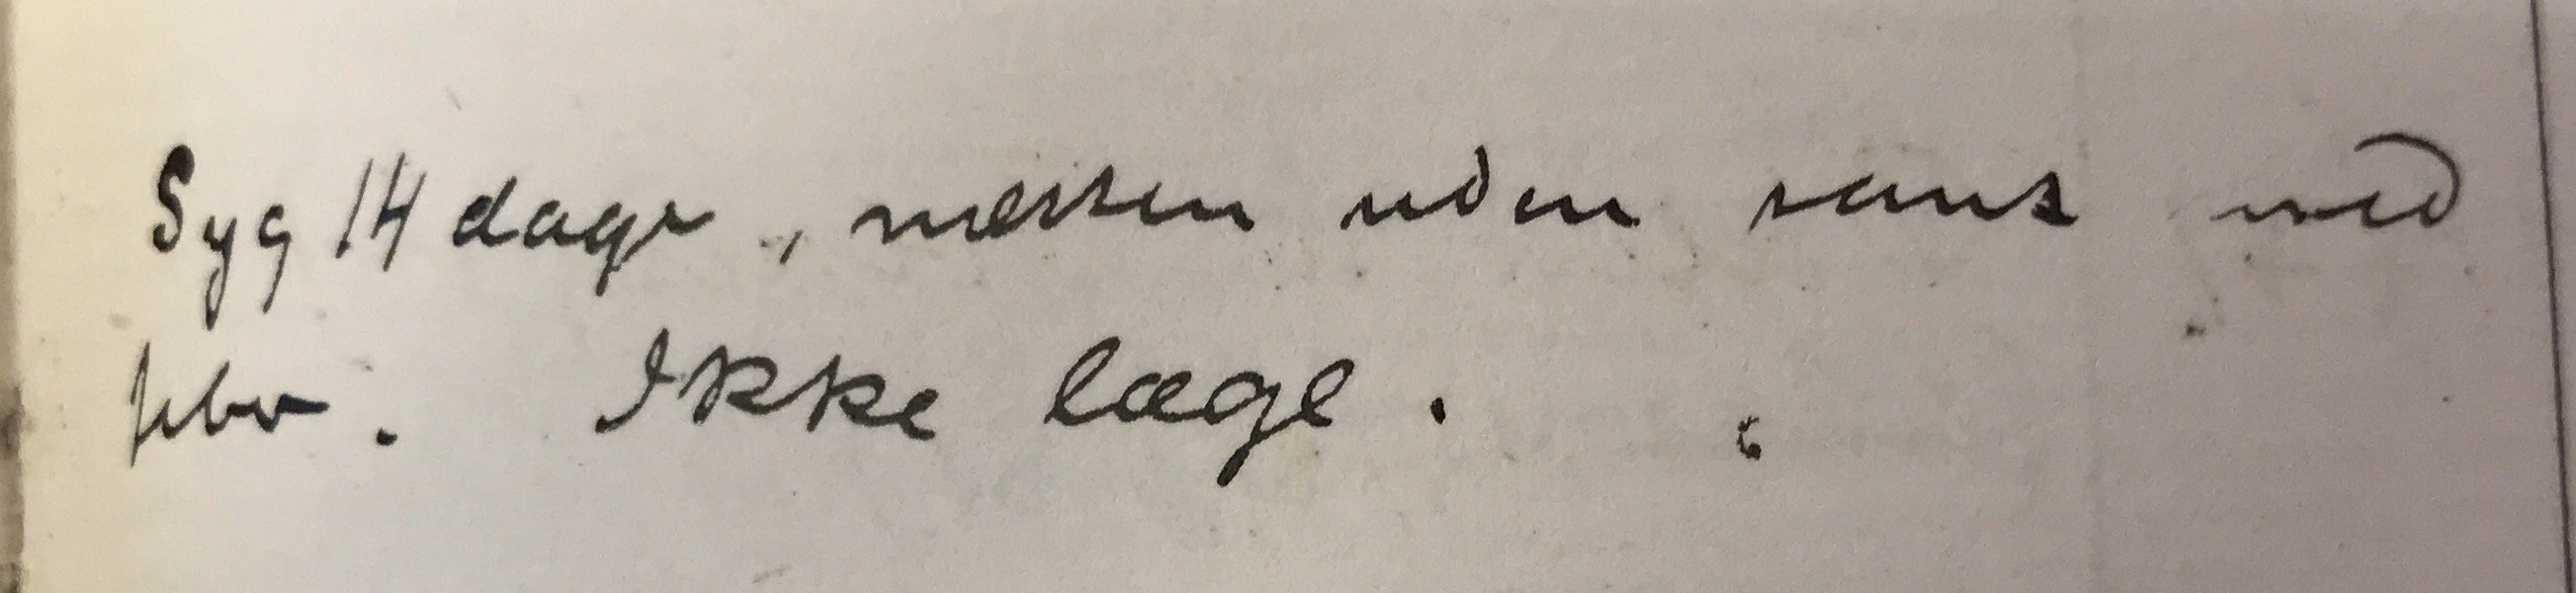 Syg 14 dage, næsten uden sans med
feber. Ikke læge.